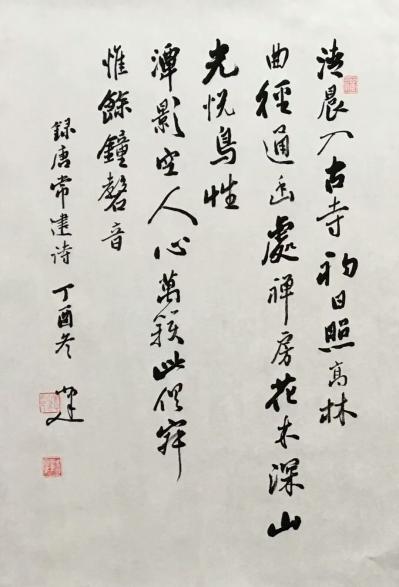 清晨入古寺初日照高林
曲径通幽處禅房花木深山
光悦鳥性
潭影空人心萬籁此俱寂
惟餘鐘磬音
録唐常建诗 丁酉冬